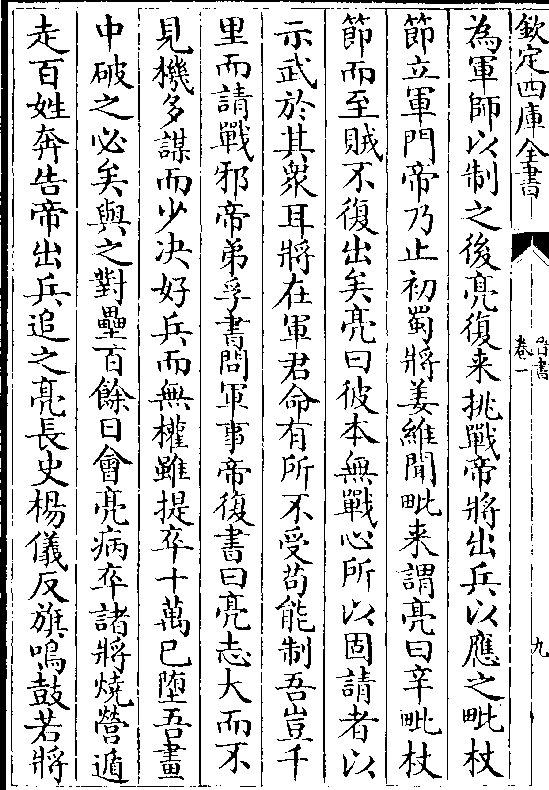 欽定四庫全書
晉書
卷一
九
為軍師以制之後亮復来挑戰帝將出兵以應之毗杖
節立軍門帝乃止初蜀將姜維聞毗来謂亮曰辛毗杖
節而至賊不復出矣亮曰彼本無戰心所以固請者以
示武於其衆耳將在軍君命有所不受茍能制吾豈千
里而請戰邪帝弟孚書問軍事帝復書曰亮志大而不
見機多謀而少决好兵而無權雖提卒十萬已墮吾畫
中破之必矣與之對壘百餘日會亮病卒諸將燒營遁
走百姓奔告帝出兵追之亮長史楊儀反旗鳴鼓若將